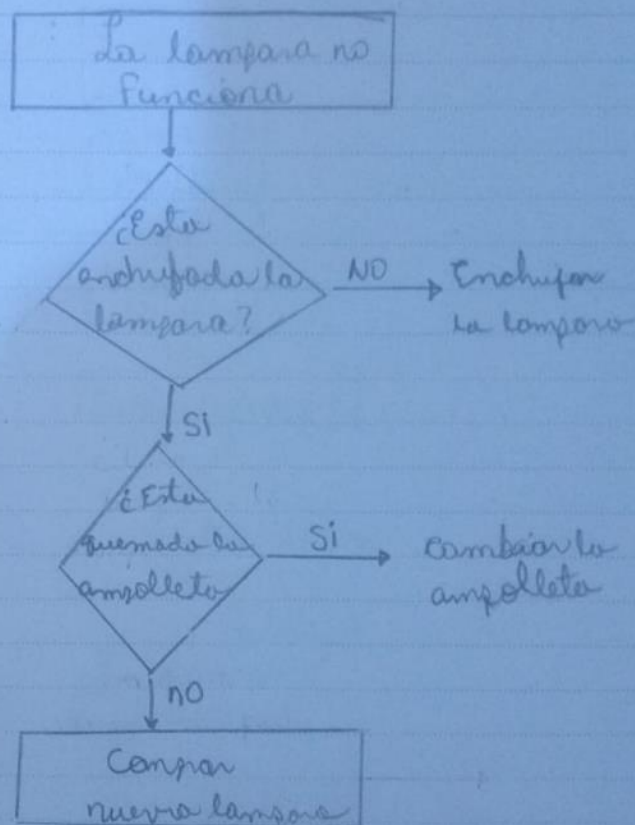 La lampara no
funciona
¿Esta
anchufada la
lampara?
NO
Enchufar
la lampara
SI
¿Esta
quemada la
ampolleta
Si
cambiar la
ampolleta
no
Comprar
nueva lampara